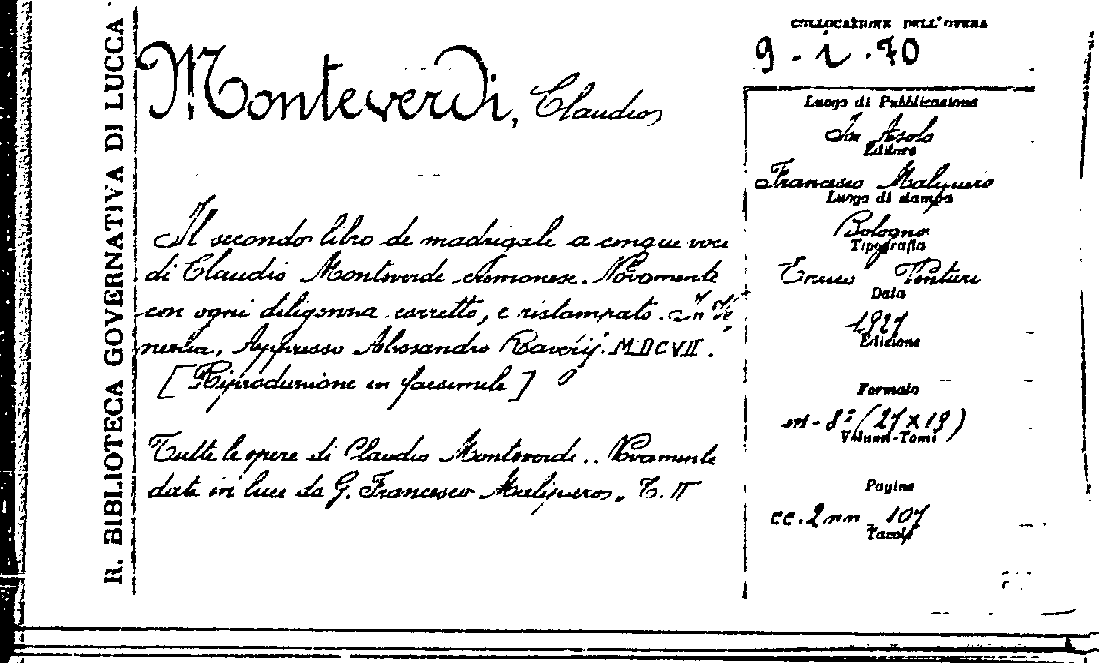 R. BIBLIOTECA GOVERNATIVA DI LUCCA
Monteverdi, Claudio
Il secondo libro de madrigale a cinque voci
di Claudio Monteverde cremonese. Novamente
con ogni diligenza corretto, e ristampato. In Ve
nezia, Appresso Alessandro Raverij. MDCVII.
[Riproduzione in facsimile]
Tutte le opere di Claudio Monteverde.. Novamente
date in luce da G. Francesco Malipiero. T. II
COLLOCAZIONE DELL'OPERA
9 - i . 70
Luogo di Pubblicazione
In Asolo
Editore
Francesco Malipiero
Luogo di stampa
Bologna
Tipografia
Enrico Venturi
Data
1927
Edizione
Formato
in - 8° (27 x 19)
Volumi-Tomi
Pagine
cc. 2 nn 107
Tavole